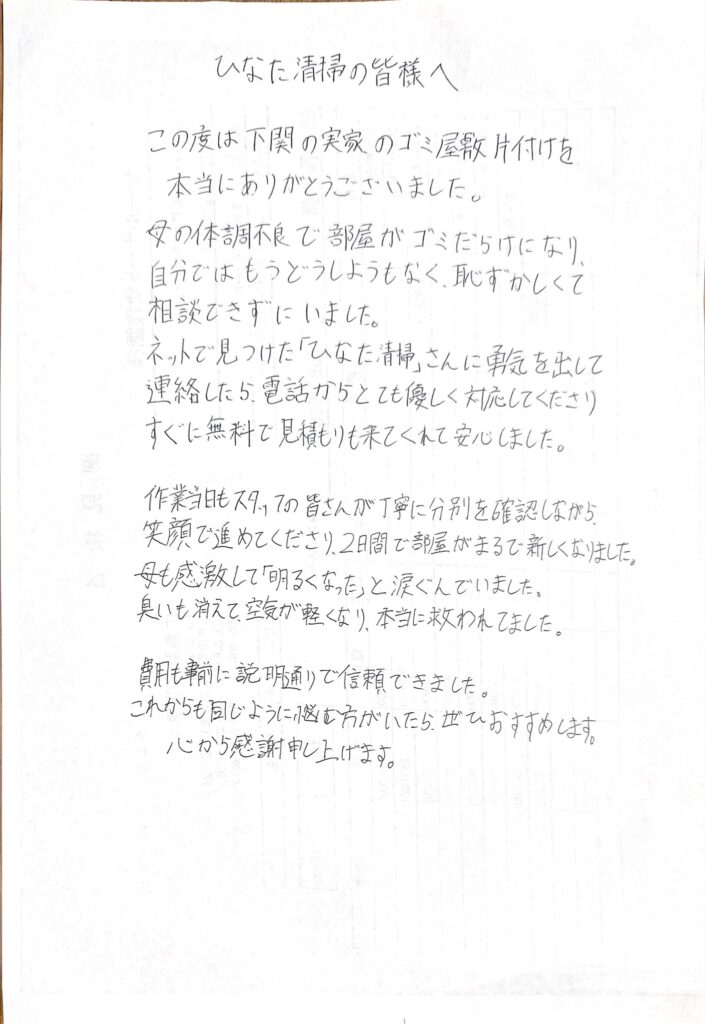 ひなた清掃の皆様へ
この度は下関の実家のゴミ屋敷片付けを
本当にありがとうございました。
母の体調不良で部屋がゴミだらけになり、
自分ではもうどうしようもなく、恥ずかしくて
相談できずにいました。
ネットで見つけた「ひなた清掃」さんに勇気を出して
連絡したら、電話からとても優しく対応してくださり
すぐに無料で見積もりも来てくれて安心しました。
作業当日もスタッフの皆さんが丁寧に分別を確認しながら、
笑顔で進めてくださり、2日間で部屋がまるで新しくなりました。
母も感激して「明るくなった」と涙ぐんでいました。
臭いも消えて、空気が軽くなり、本当に救われてました。
費用も事前に説明通りで信頼できました。
これからも同じように悩む方がいたら、ぜひおすすめします。
心から感謝申し上げます。